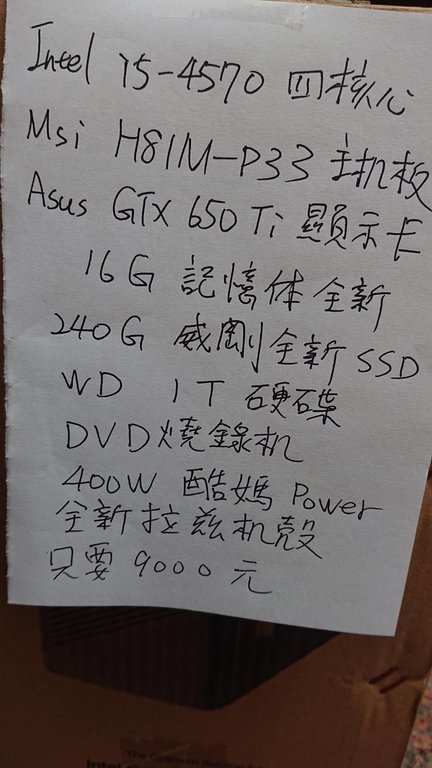 Intel i5-4570 四核心
Msi H81M-P33 主机板
Asus GTX 650 Ti 顯示卡
16G 記憶体全新
240G 威剛全新SSD
WD 1T 硬碟
DVD燒錄机
400W 酷媽 Power
全新拉兹机殼
只要 9000 元